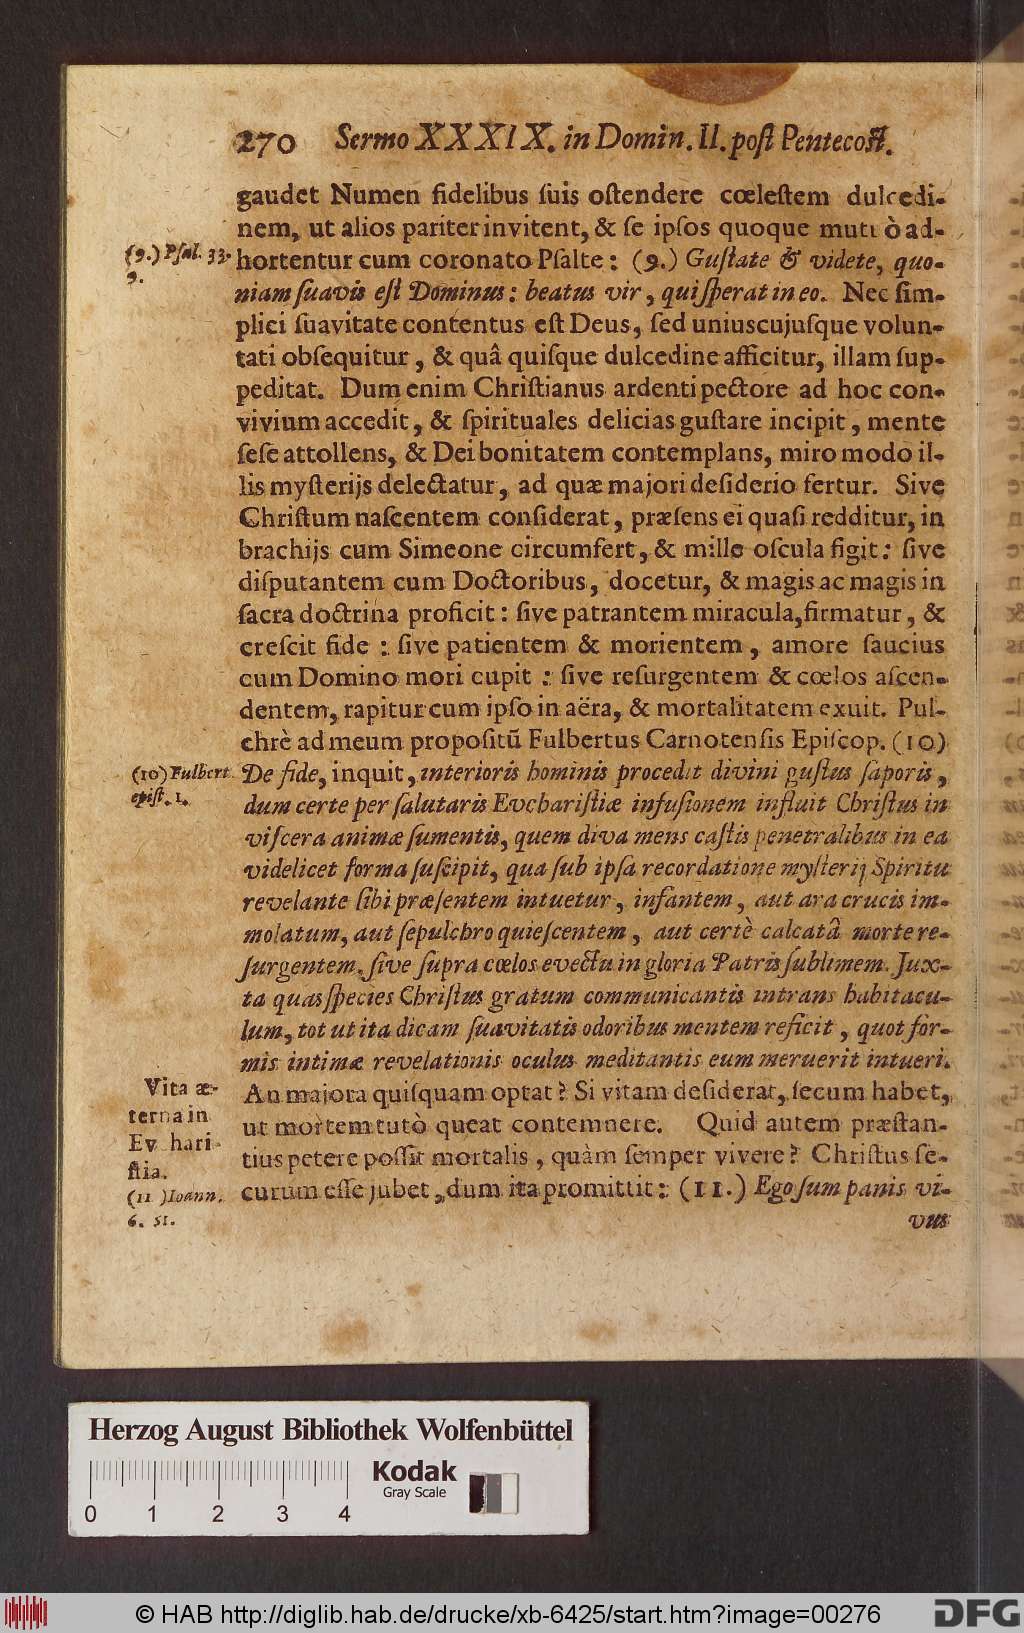 270 Sermo XXXIX. in Domin. II. poſt Pentecoſt.
gaudet Numen fidelibus ſuis oſtendere cœleſtem dulcedi-
nem, ut alios pariter invitent, & ſe ipſos quoque mutuò ad-
(9.) Pſal. 33.
9.
hortentur cum coronato Pſalte: (9.) Guſtate & videte, quo-
niam ſuavis eſt Dominus: beatus vir, qui ſperat in eo. Nec ſim-
plici ſuavitate contentus eſt Deus, ſed uniuscujuſque volun-
tati obſequitur, & quâ quiſque dulcedine afficitur, illam ſup-
peditat. Dum enim Chriſtianus ardenti pectore ad hoc con-
vivium accedit, & ſpirituales delicias guſtare incipit, mente
ſeſe attollens, & Dei bonitatem contemplans, miro modo il-
lis myſterijs delectatur, ad quæ majori deſiderio fertur. Sive
Chriſtum naſcentem conſiderat, præſens ei quaſi redditur, in
brachijs cum Simeone circumfert, & mille oſcula figit: ſive
diſputantem cum Doctoribus, docetur, & magis ac magis in
ſacra doctrina proficit: ſive patrantem miracula, firmatur, &
creſcit fide: ſive patientem & morientem, amore ſaucius
cum Domino mori cupit: ſive reſurgentem & cœlos aſcen-
dentem, rapitur cum ipſo in aëra, & mortalitatem exuit. Pul-
chrè ad meum propoſitũ Fulbertus Carnotenſis Epiſcop. (10)
(10) Fulbert.
epiſt. 1.
De fide, inquit, interioris hominis procedit divini guſtus ſaporis,
dum certe per ſalutaris Euchariſtiæ infuſionem influit Chriſtus in
viſcera animæ ſumentis, quem diva mens caſtis penetralibus in ea
videlicet forma ſuſcipit, qua ſub ipſa recordatione myſterij Spiritu
revelante ſibi præſentem intuetur, infantem, aut ara crucis im-
molatum, aut ſepulchro quieſcentem, aut certè calcatâ morte re-
ſurgentem, ſive ſupra cœlos evectu in gloria Patris ſublimem. Jux-
ta quas ſpecies Chriſtus gratum communicantis intrans habitacu-
lum, tot ut ita dicam ſuavitatis odoribus mentem reficit, quot for-
mis intimæ revelationis oculus meditantis eum meruerit intueri.
Vita æ-
terna in
Euchari-
ſtia.
(11) Ioann.
6. 51.
An majora quiſquam optat? Si vitam deſiderat, ſecum habet,
ut mortem tutò queat contemnere. Quid autem præſtan-
tius petere poſſit mortalis, quàm ſemper vivere? Chriſtus ſe-
curum eſſe jubet, dum ita promittit: (11.) Ego ſum panis vi-
vus
Herzog August Bibliothek Wolfenbüttel
Kodak
Gray Scale
0 1 2 3 4
© HAB http://diglib.hab.de/drucke/xb-6425/start.htm?image=00276
DFG